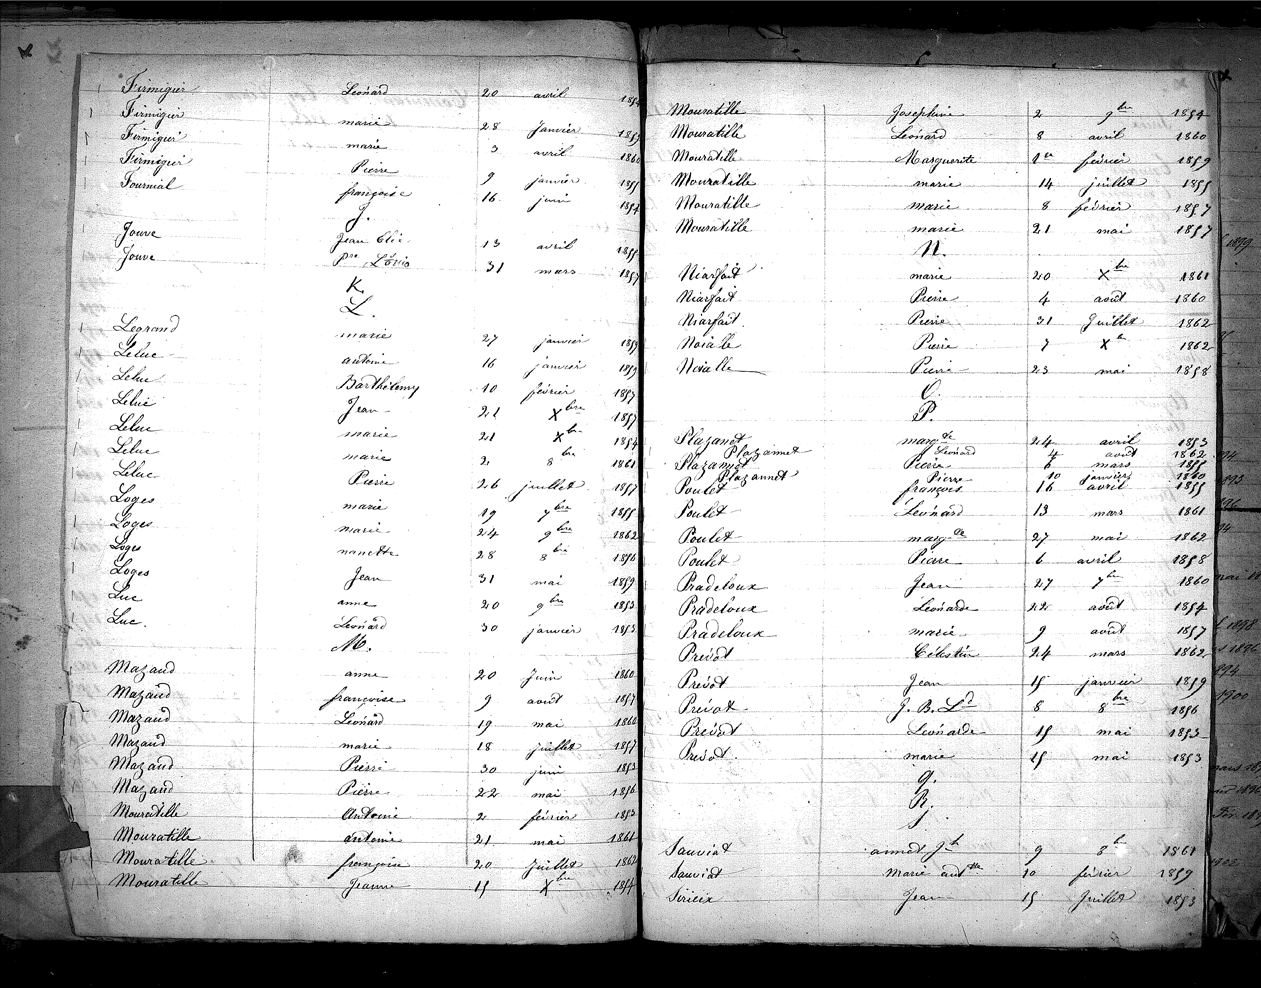 Firmigier Léonard 20 avril 1854
Firmigier marie 28 Janvier 1859
Firmigier marie 3 avril 1860
Firmigier Pierre 9 janvier 1855
Fournial françoise 16 juin 1857
J.
Jouve Jean Elie 13 avril 1855
Jouve Pre Louis 31 mars 1857
K.
L.
Legrand marie 27 janvier 1859
Leluc antoine 16 janvier 1859
Leluc Barthélemy 10 février 1857
Leluc Jean 21 Xbre 1857
Leluc marie 21 Xbre 1854
Leluc marie 2 8bre 1861
Leluc Pierre 26 juillet 1857
Loges marie 19 7bre 1855
Loges marie 24 9bre 1862
Loges nanette 28 8bre 1856
Loges Jean 31 mai 1859
Luc anne 20 9bre 1853
Luc Léonard 30 janvier 1853
M.
Mazaud anne 20 Juin 1860
Mazaud françoise 9 août 1857
Mazaud Léonard 19 mai 1860
Mazaud marie 18 juillet 1857
Mazaud Pierre 30 juin 1853
Mazaud Pierre 22 mai 1856
Mouratille Antoine 2 février 1853
Mouratille antoine 21 mai 1861
Mouratille françoise 20 Juillet 1862
Mouratille Jeanne 15 Xbre 1854
Mouratille Joséphine 2 9bre 1854
Mouratille Léonard 8 avril 1860
Mouratille Marguerite 1er février 1859
Mouratille marie 14 juillet 1855
Mouratille marie 8 février 1857
Mouratille marie 21 mai 1857
N.
Niarfait marie 20 Xbre 1861
Niarfait Pierre 4 août 1860
Niarfait Pierre 31 Juillet 1862
Noialle Pierre 7 Xbre 1862
Noialle Pierre 23 mai 1858
O.
P.
Plazanet margte 24 avril 1853
Plazannet Léonard 4 août 1862
Plazannet Pierre 6 mars 1855
Plazannet Pierre 10 janvier 1860
Poulet françois 16 avril 1855
Poulet Léonard 13 mars 1861
Poulet margte 27 mai 1862
Poulet Pierre 6 avril 1858
Pradeloux Jean 27 7bre 1860
Pradeloux Léonarde 22 août 1854
Pradeloux marie 9 août 1857
Prévot Célestin 24 mars 1862
Prévot Jean 15 janvier 1859
Prévot J. B. Ld 8 8bre 1856
Prévot Léonarde 15 mai 1853
Prévot marie 15 mai 1853
Q.
R.
S
Sauviat annet Jh 9 8bre 1861
Sauviat Marie antte 10 février 1859
Sirieix Jean 15 Juillet 1853